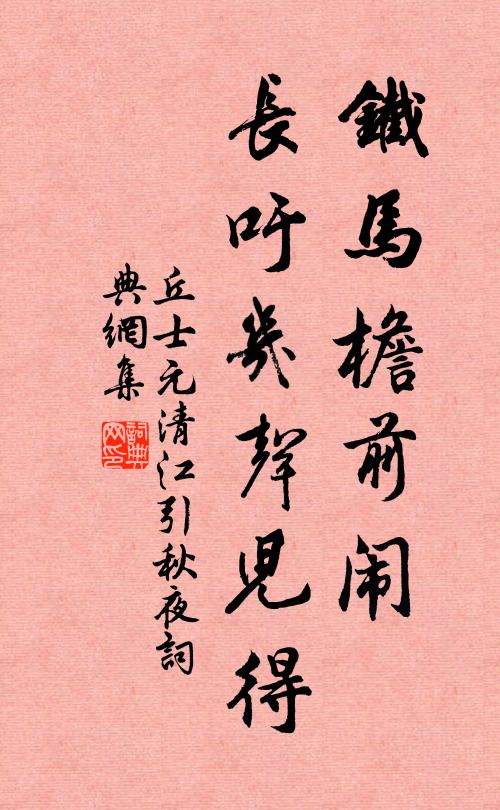 鐵馬檐前闹
長吁幾聲児得
丘士元清江引秋夜詞
典網集
詞典网印